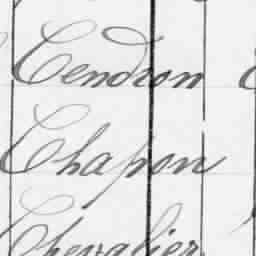 Cendron
Chapon
Chevalier